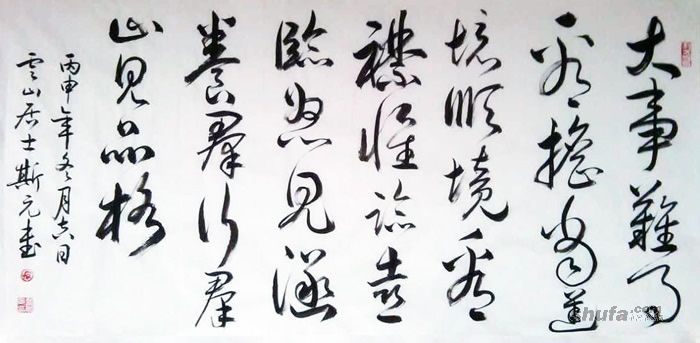 大事難事
看擔當逆
境順境看
襟懷臨喜
臨怒見涵
養羣行羣
止見品格
丙申年冬月六日
雲山居士斯元書
shufa.com